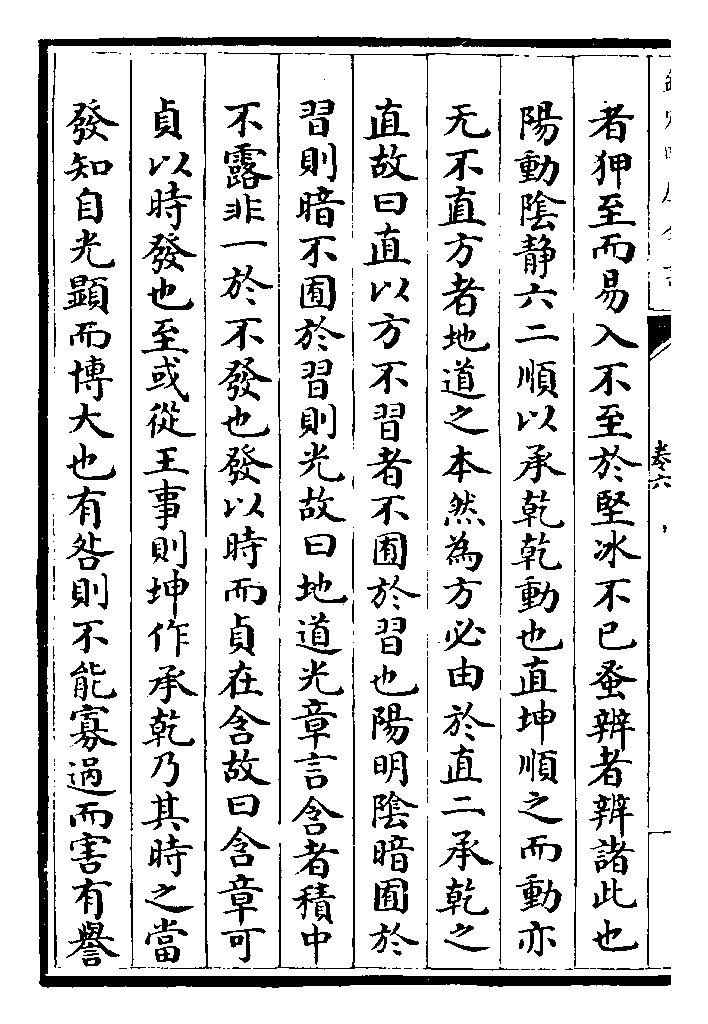 卷六
者狎至而易入不至於堅冰不已蚤辨者辨諸此也
陽動陰静六二順以承乾乾動也直坤順之而動亦
无不直方者地道之本然為方必由於直二承乾之
直故曰直以方不習者不囿於習也陽明陰暗囿於
習則暗不囿於習則光故曰地道光章言含者積中
不露非一於不發也發以時而貞在含故曰含章可
貞以時發也至或從王事則坤作承乾乃其時之當
發知自光顯而博大也有咎則不能寡過而害有譽